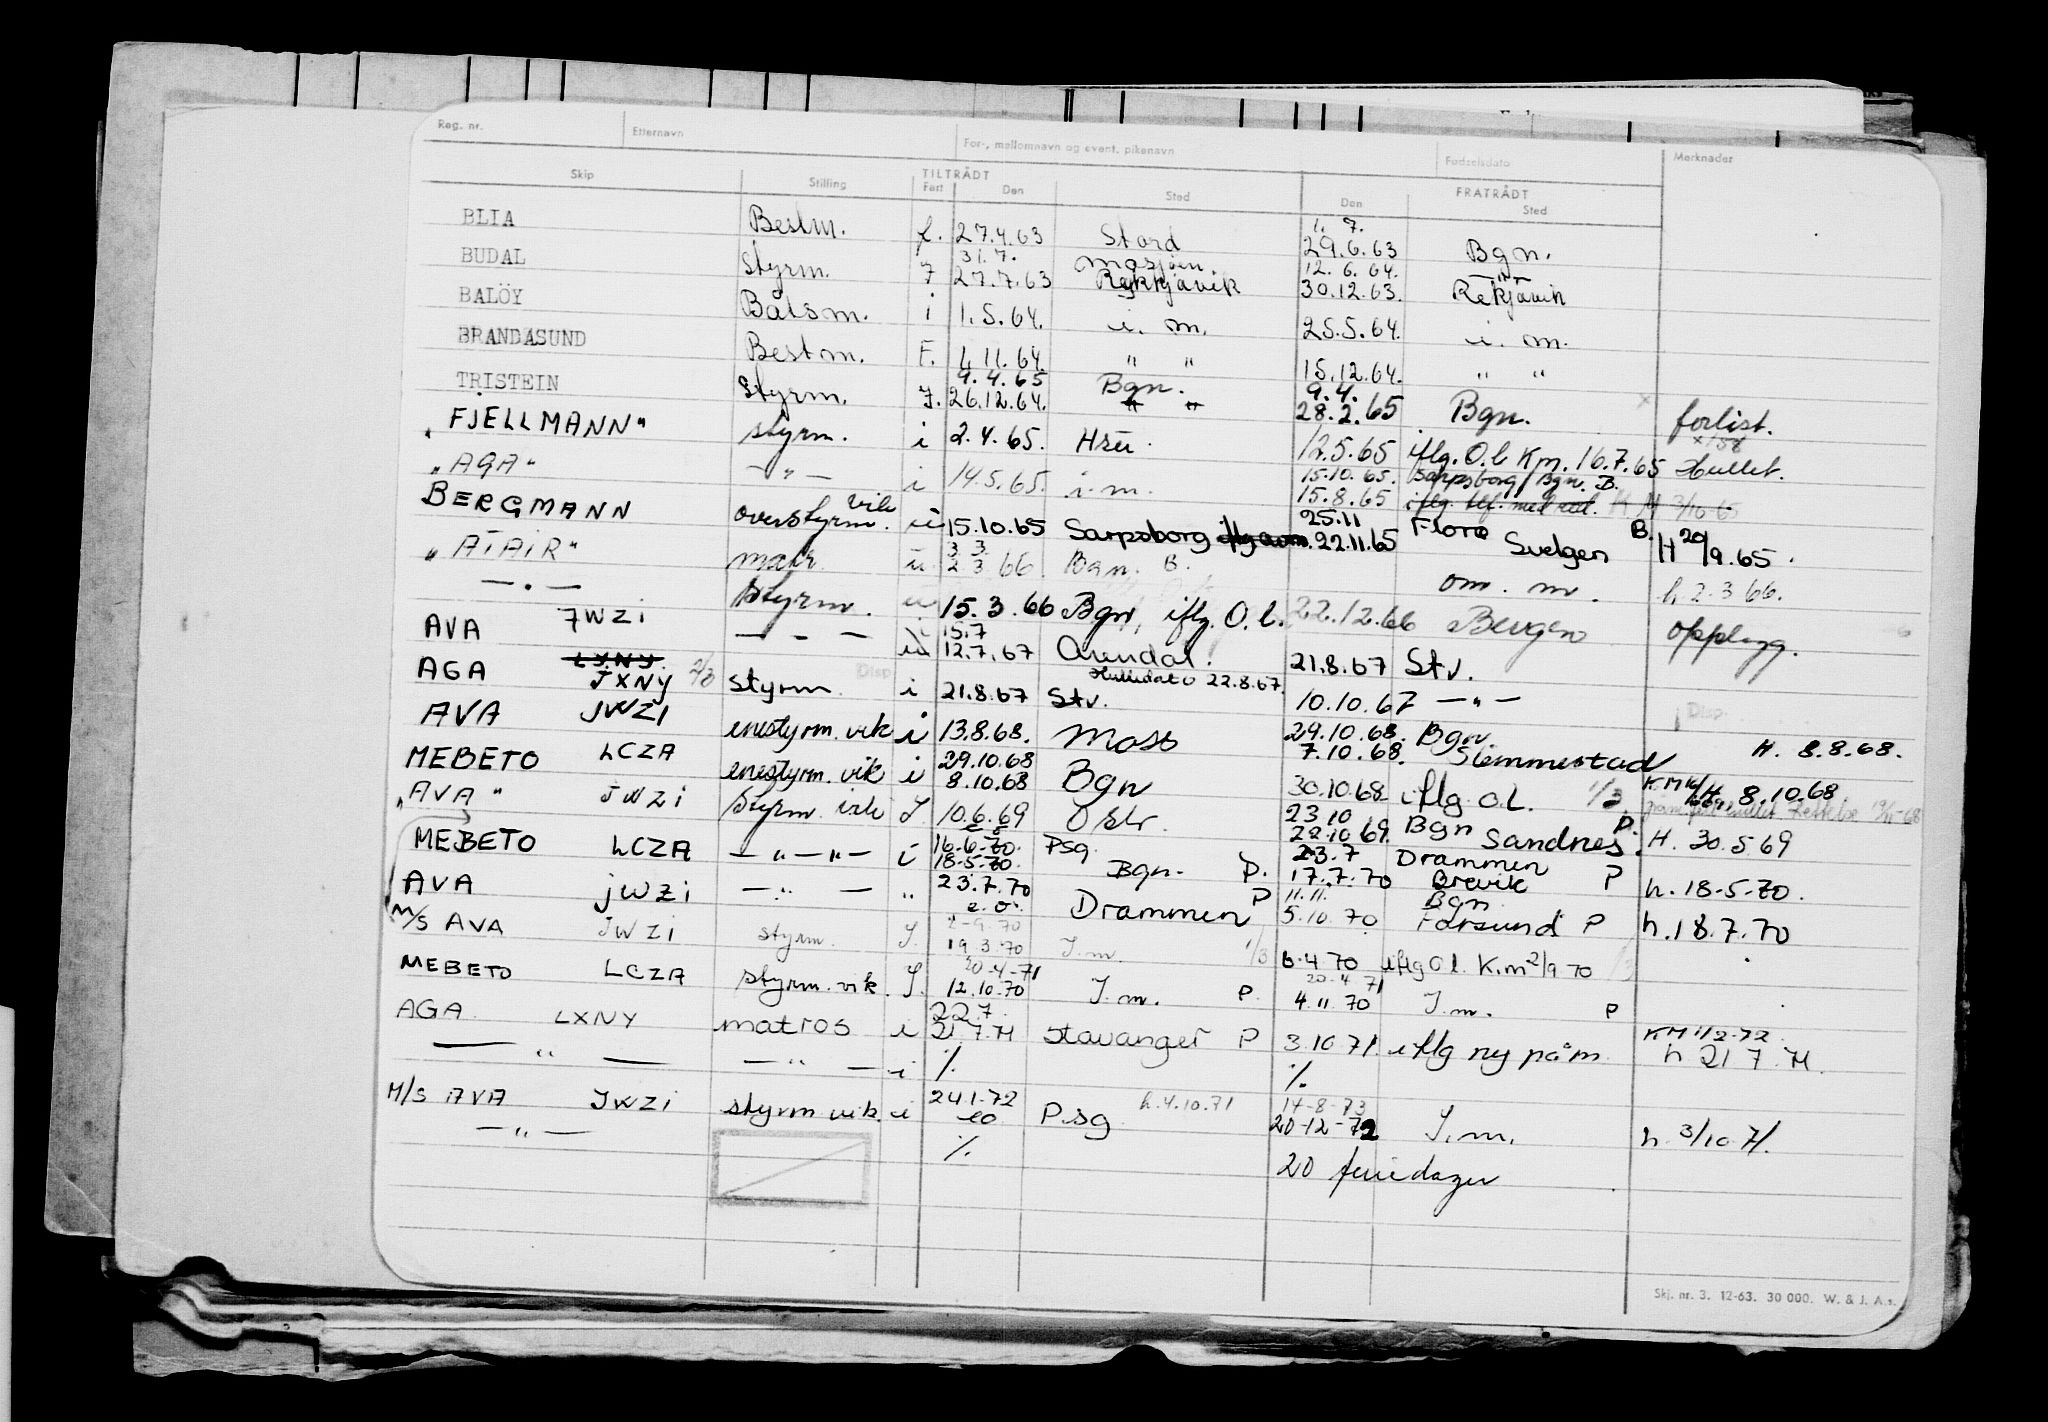 Reg. nr. Etternavn For-, mellomnavn og event. pikenavn Fødselsdato Merknader
Skip Stilling TILTRÅDT Fart Den Sted FRATRÅDT Den Sted
BLIA Bestm. f. 27.4.63 Stord 1. 7. 29.6.63 Bgn.
BUDAL Styrm. 7 31.7. 27.7.63 Mosjøen. Reykkjavik 12. 6. 64. 30.12.63. Rekjavik
BALÖY Båtsm. i 1.5.64. i. m. 25.5.64. i. m.
BRANDASUND Bestm. F. 4 11.64. " " 15.12.64. " "
TRISTEIN Styrm. 7. 9.4.65 26.12.64. Bgn. " " 9.4. 28.2.65 Bgn. forlist.
"FJELLMANN" styrm. i 2.4.65. 12.5.65 iflg. O.l Km. 16.7.65 Hullet.
"AGA" — " — i 14.5.65. i.m. 15.10.65. 15.8.65 Sarpsborg/Bgn. B. iflg. tlf. med red. KM 3/10 65
BERGMANN overstyrm. vik. 15.10.65 Sarpsborg 25.11 22.11.65 Florø B. Svelgen H 20/9.65.
"ATAIR" matr. 3 3. 2 3 66. Bgn. B. om. m. h. 2.3 66.
— " — Styrm. 15.3.66 Bgn, iflg. O.l. 22.12.66 Bergen opplagg.
AVA JWZI — " — 15.7 12.7.67 Arendal. 21.8.67 Stv.
AGA LXNY JXNY 2/3 styrm. i 21.8.67 Stv. Hulledato 22.8.67. 10.10.67 — " — Disp.
AVA JWZI enestyrm. vik i 13.8.68. Moss 29.10.68. 7.10.68. Bgn Slemmestad H. 8.8.68.
MEBETO LCZA enestyrm. vik i 29.10.68 8.10.68 Bgn 30.10.68 iflg. O.L. 1/3. H 8.10.68
"AVA" JWZI Styrm. vik J. 10.6.69 Oslo. 23.10 22.10.69. Bgn P. Sandnes. H. 30.5.69
MEBETO LCZA — " — " — i 16-6-70. 18-5-70. Psg. Bgn. P. 23.7 17.7.70 Drammen Brevik P h. 18-5-70.
AVA JWZI — " — " 23.7.70 e.o. Drammen P 11.11. 5.10.70 Bgn Farsund P h.18.7.70
M/S AVA JWZI styrm. J. 2-9.70 19.3.70 J.m. 1/3 6.4 70 iflg O l. K.m 2/9 70
MEBETO LCZA styrm. vik. J. 20-4-71 12.10.70 J.m. P. 20-4 71 4.11.70 J.m. P
AGA LXNY matros i 22.7 21.7.71 Stavanger P 3.10 71. iflg ny påm. KM 1/2-72 h 21 7. 71.
— " — — " — i %. %.
M/S AVA JWZI styrm vik. i 24.1-72 eo Psg h.4.10.71 14-8-73 20-12-72 J.m. h. 3/10 71.
— " — %. 20 feriedager
Skj. nr. 3. 12-63. 30 000. W. & J. A.s.